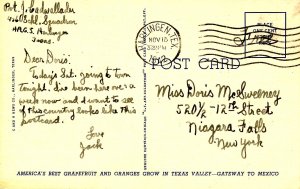 Pvt. J. Cadwallader
Schl. Squadron
H.A.G.S. Harlingen
Texas.
HARLINGEN, TEX.
NOV 15
PLACE
ONE CENT
STAMP
HERE
POST CARD
Dear Doris,
Today's Sat. going to town
tonight. I've been here over a
week now and I want to see
if this country looks like this
postcard.
Love
Jack
Miss Doris McSweeney
520½ - 12th Street
Niagara Falls
New York
AMERICA'S BEST GRAPEFRUIT AND ORANGES GROW IN TEXAS VALLEY—GATEWAY TO MEXICO